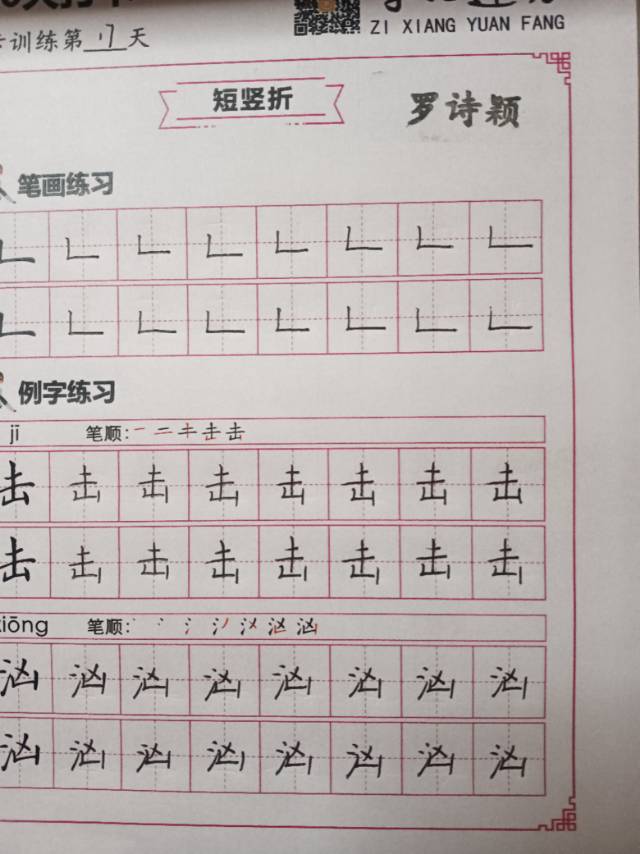 ZI XIANG YUAN FANG
训练第 17 天
短竖折
罗诗颖
笔画练习
𠃊 𠃊 𠃊 𠃊 𠃊 𠃊 𠃊 𠃊
𠃊 𠃊 𠃊 𠃊 𠃊 𠃊 𠃊 𠃊
例字练习
jī 笔顺:
击 击 击 击 击 击 击 击
击 击 击 击 击 击 击 击
xiōng 笔顺:
汹 汹 汹 汹 汹 汹 汹 汹
汹 汹 汹 汹 汹 汹 汹 汹